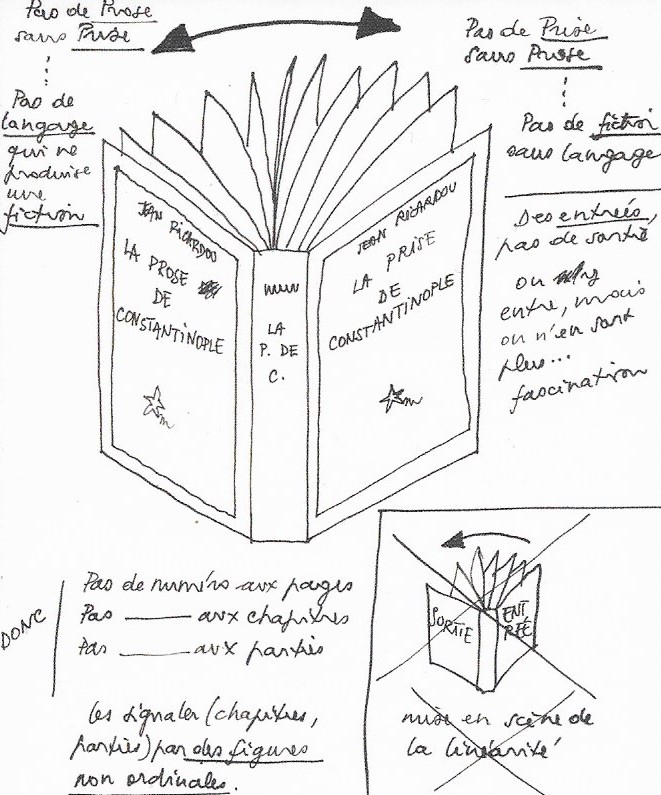 Pas de Prose
sans Prise
Pas de
langage
qui ne
produise
une
fiction
Pas de Prise
sans Prose
Pas de fiction
sans langage
Des entrées,
pas de sortie
on y
entre, mais
on n'en sort
plus...
fascination
JEAN RICARDOU
LA PROSE
DE
CONSTANTINOPLE
m
LA
P. DE
C.
JEAN RICARDOU
LA PRISE
DE
CONSTANTINOPLE
m
DONC
Pas de numéro aux pages
Pas ——— aux chapitres
Pas ——— aux parties
les signaler (chapitres,
parties) par des figures
non ordinales.
SORTIE
ENT
RÉE
mise en scène de
la linéarité